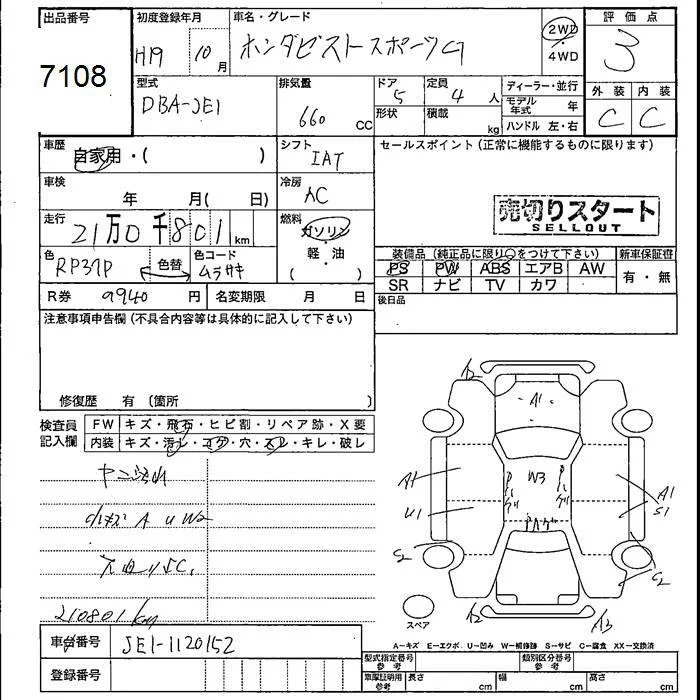 出品番号 初度登録年月 車名・グレード 評価点
7108 H19 10月 ホンダゼストスポーツG 2WD・4WD 3
型式 排気量 ドア 定員 ディーラー・並行 外装 内装
DBA-JE1 660 CC 5 4人 モデル年式 年 C C
形状 積載 kg ハンドル 左・右
車歴 シフト セールスポイント(正常に機能するものに限ります)
自家用・( ) IAT
車検 年 月( 日) 冷房 AC
売切りスタート
SELLOUT
走行 21万0千801km 燃料 ガソリン
軽・油
( )
色 RP37P 色替 色コード ムラサキ
装備品(純正品に限り○をつけて下さい) 新車保証書
PS PW ABS エアB AW 有・無
SR ナビ TV カワ
R券 9940円 名変期限 月 日 後日品
注意事項申告欄(不具合内容等は具体的に記入して下さい)
修復歴 有(箇所
検査員記入欄 FW キズ・飛石・ヒビ割・リペア跡・X要
内装 キズ・汚レ・コゲ・穴・スレ・キレ・破レ
A2
A1
W3
A1 A1
U1 S1
S2 C2
ヤニ汚れ
A U W2
210801km
A2 A3
スペア
A-キズ E-エクボ U-凹み W-補修跡 S-サビ C-腐食 XX-交換済
車台番号 JE1-1120152
登録番号
型式指定番号 参考 類別区分番号 参考
車庫証明用 参考 長さ cm 幅 cm 高さ cm